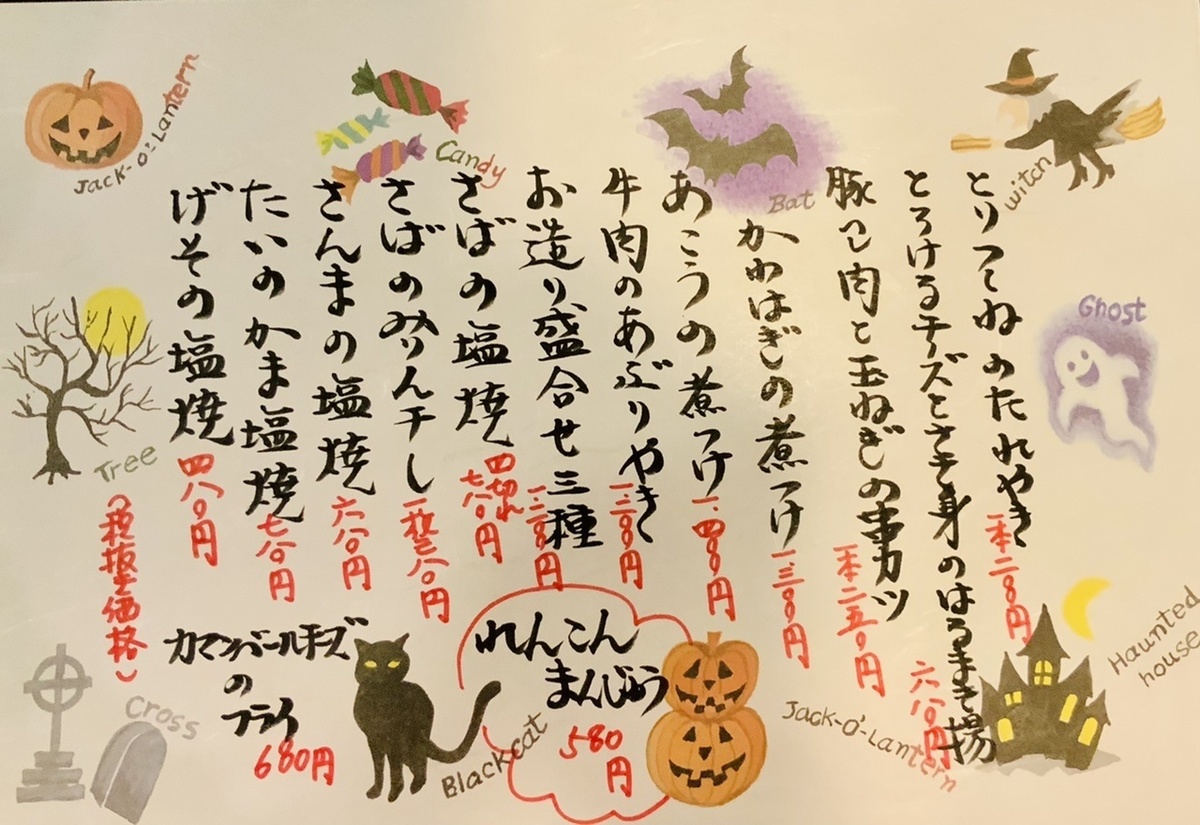 とりつくねのたれやき
とろけるチーズとささ身のはるまき揚 六八〇円
豚 肉と玉ねぎの串カツ 一本二五〇円
かわはぎの煮つけ 一、三〇〇円
あこうの煮つけ 一、四〇〇円
牛肉のあぶりやき
お造り盛合せ三種
さばの塩焼 四切れ 七八〇円
さばのみりん干し 一枚三八〇円
さんまの塩焼 六八〇円
たいのかま塩焼 七八〇円
げその塩焼 四八〇円
(税抜き価格)
れんこん
まんじゅう
580
円
カマンベールチーズ
の
フライ
680円
Jack-O'-Lantern
Candy
Bat
witch
Ghost
Tree
Haunted
house
Cross
Blackcat
Jack-O'-Lantern